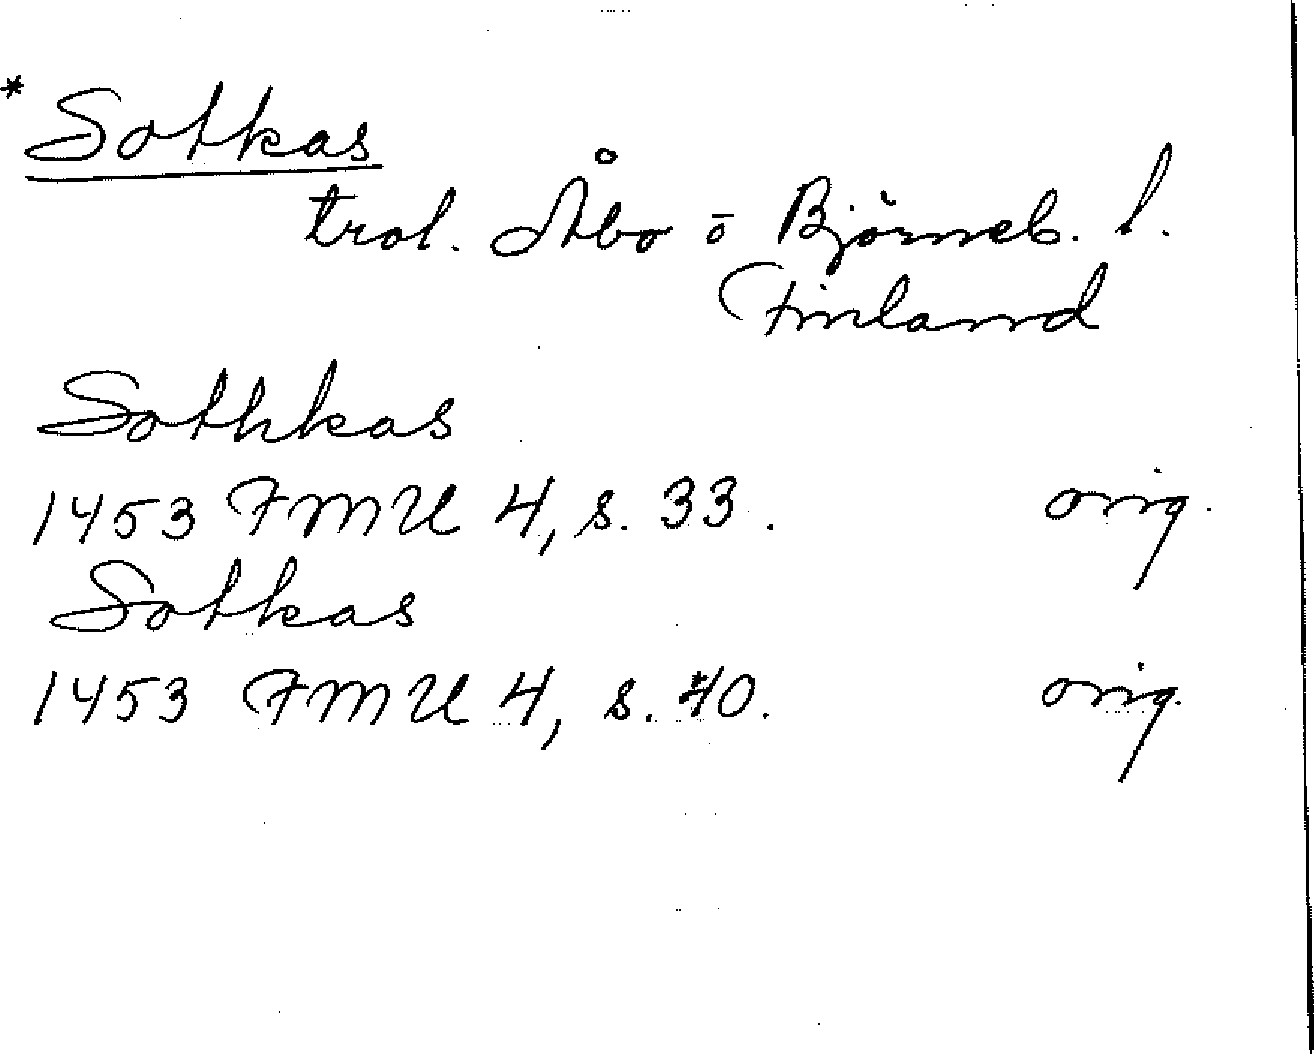 * Sotkas
trol. Åbo o Björneb. l.
Finland
Sothkas
1453 FMU 4, s. 33. orig.
Sotkas
1453 FMU 4, s. 40. orig.